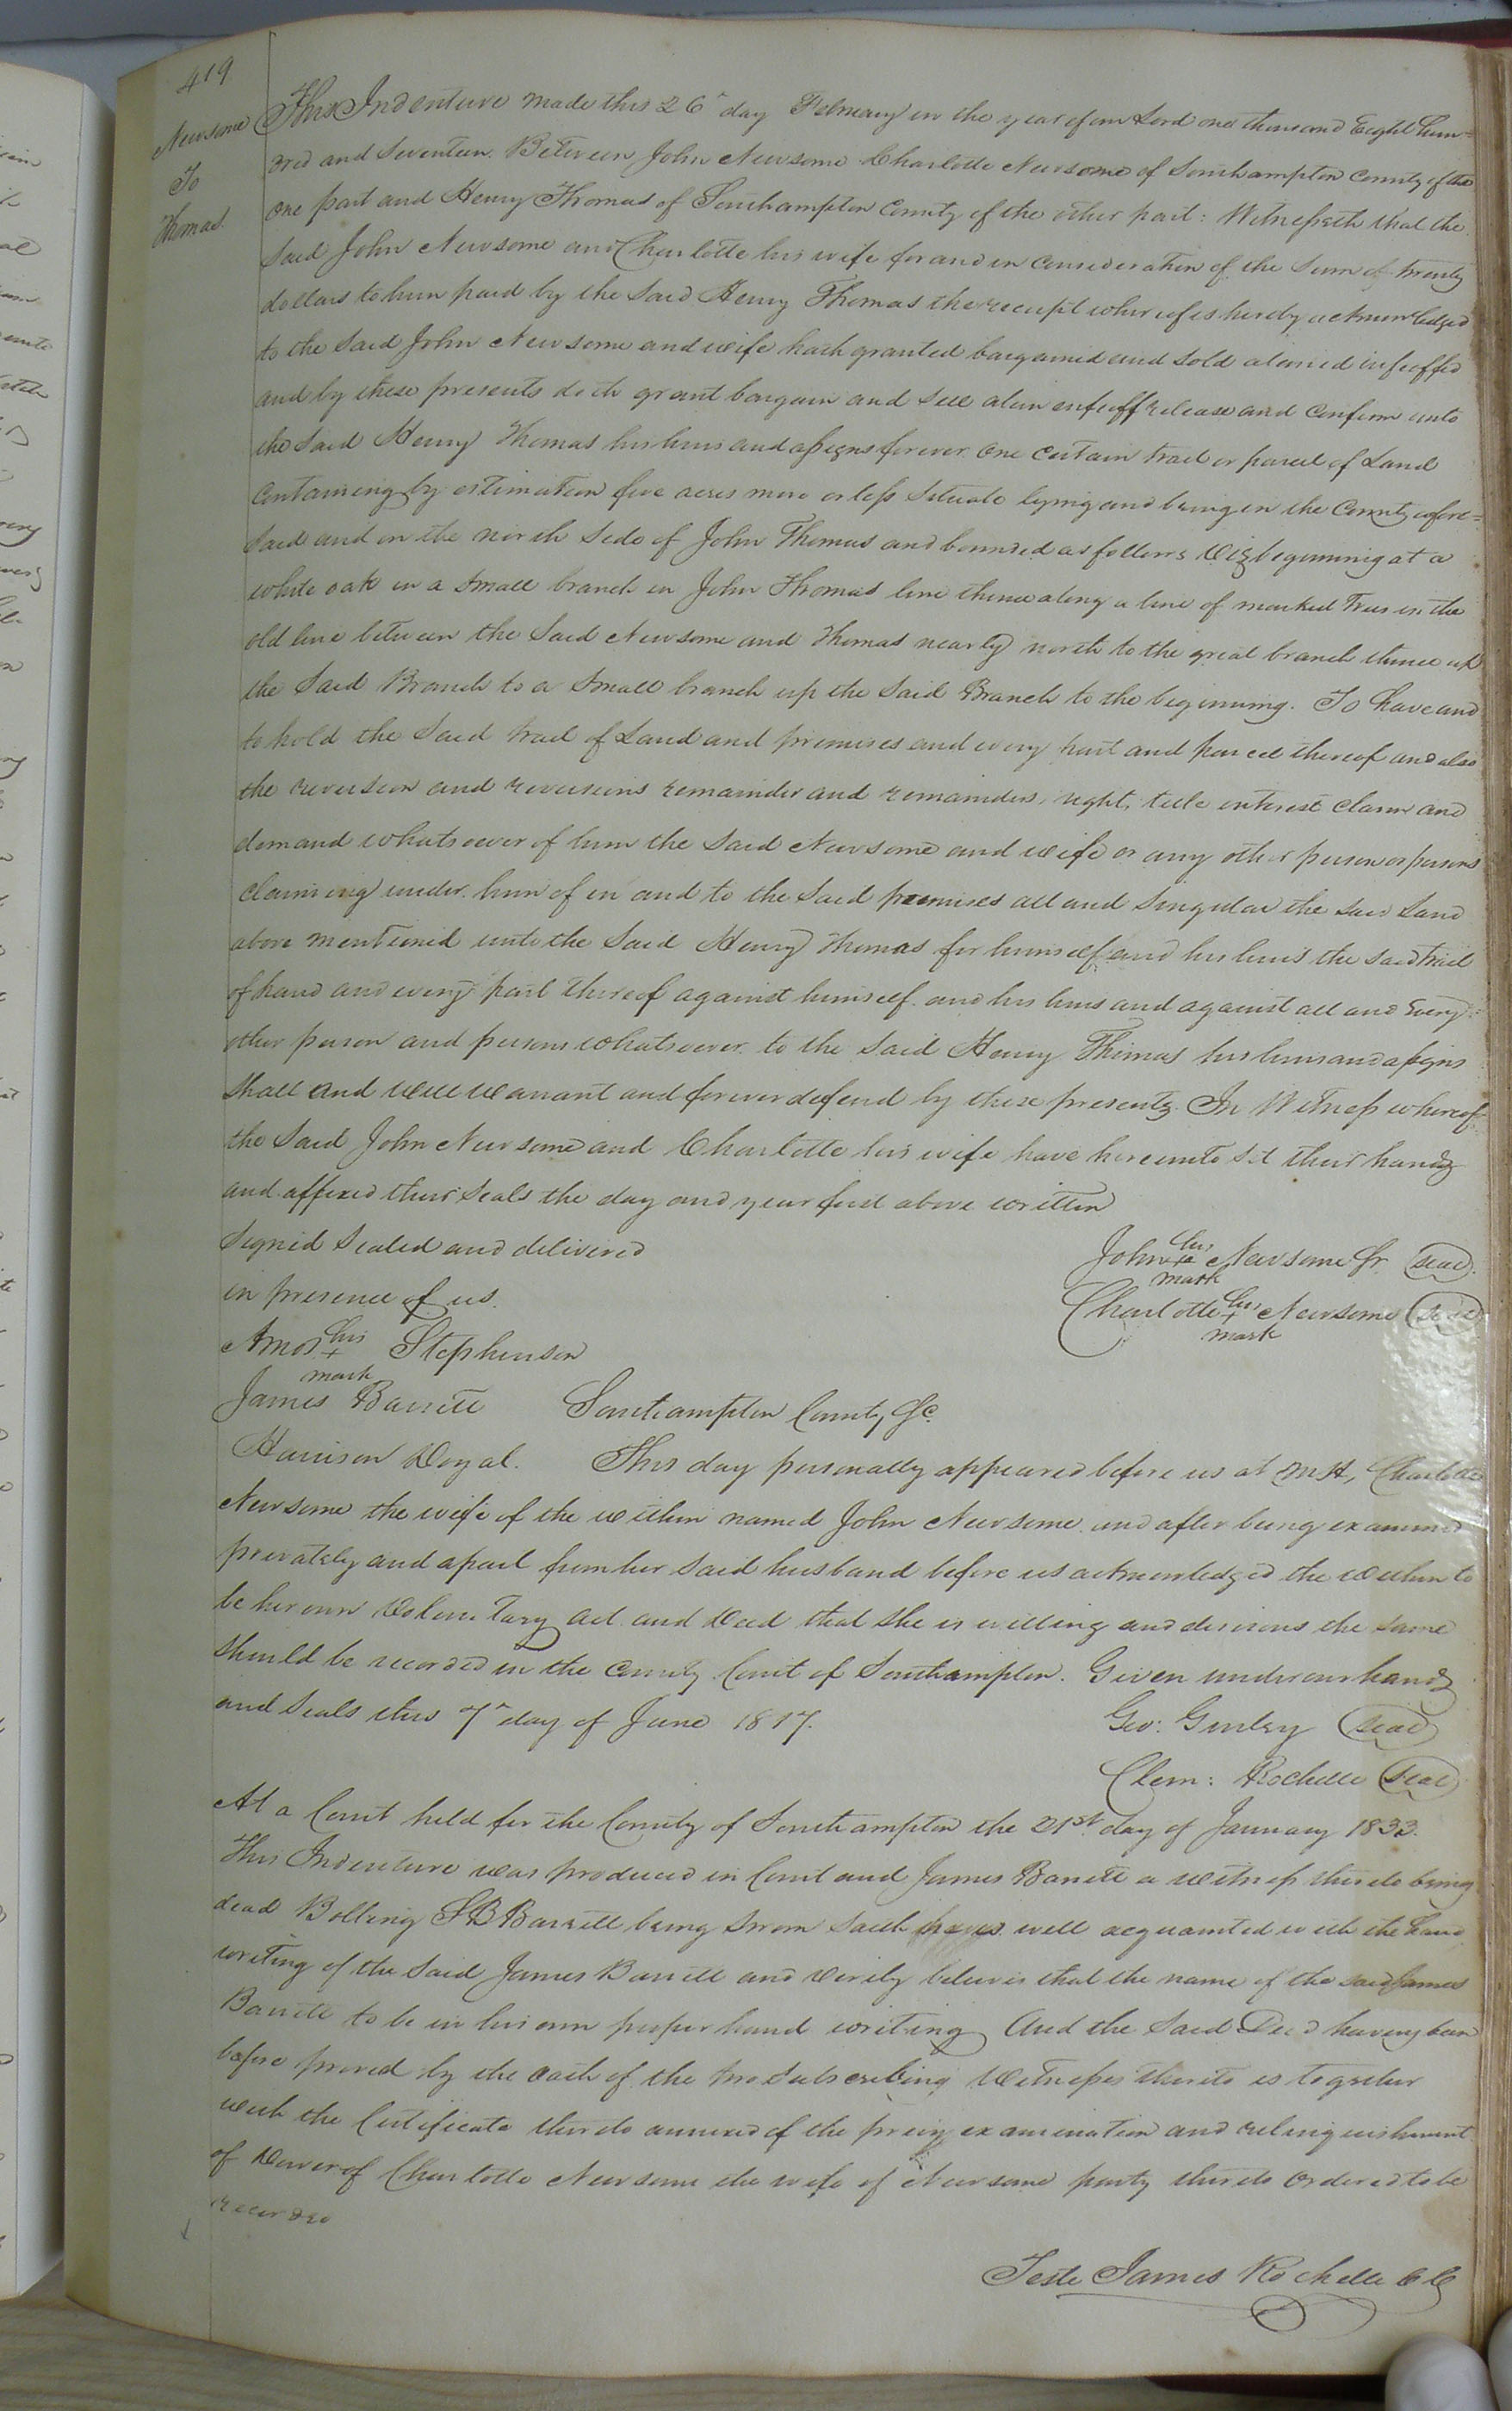 419
Newsome
To
Thomas.
This Indenture made this 26th day February in the year of our Lord one thousand Eight hun=
dred and Seventeen. Between John Newsome Charlotte Newsome of Southampton County of the
one part and Henry Thomas of Southampton County of the other part: Witnesseth that the
Said John Newsome and Charlotte his wife for and in Consideration of the Sum of twenty
dollars to him paid by the Said Henry Thomas the receipt whereof is hereby acknowledged
to the Said John Newsome and wife hath granted bargained and Sold aliened infeoffed
and by these presents doth grant bargain and Sell alien enfeoff release and Confirm unto
the Said Henry Thomas his heirs and assigns forever One Certain tract or parcel of Land
Containing by estimation five acres more or less Situate lying and being in the County afore=
Said and on the north Side of John Thomas and bounded as follows Viz beginning at a
white oak in a Small branch in John Thomas line thence along a line of marked Trees in the
old line between the Said Newsome and Thomas nearly north to the great branch thence up
the Said Branch to a Small branch up the Said Branch to the beginning. To have and
to hold the Said tract of Land and premises and every part and parcel thereof and also
the reversion and reversions remainder and remainders, right, title interest Claim and
demand whatsoever of him the Said Newsome and wife or any other person or persons
Claiming under him of in and to the Said premises all and Singular the Said Land
above mentioned unto the Said Henry Thomas for himself and his heirs the said tract
of land and every part thereof against himself and his heirs and against all and Every
other person and persons whatsoever to the Said Henry Thomas his heirs and assigns
Shall and will warrant and forever defend by these presents. In Witness whereof
the Said John Newsome and Charlotte his wife have hereunto Set their hands
and affixed their Seals the day and year first above written
Signed Sealed and delivered
in presence of us.
John his + mark Newsome Jr (seal)
Charlotte his + mark Newsome (seal)
Amos his + mark Stephenson
James Barrett
Harrison Doyal.
Southampton County Sc.
This day personally appeared before us at Charlotte
Newsome the wife of the within named John Newsome and after being examined
privately and apart from her Said husband before us acknowledged the within to
be her own Voluntary act and Deed that She is willing and desirous the same
Should be recorded in the County Court of Southampton. Given under our hands
and Seals this 7th day of June 1817.
Geo: Gurley (seal)
Clem: Rochelle (seal)
At a Court held for the County of Southampton the 21st day of January 1833.
This Indenture was produced in Court and James Barrett a witness thereto being
dead Bolling S B Barrett being Sworn Saith well acquainted with the hand
writing of the Said James Barrett and Verily believes that the name of the said James
Barrett to be in his own proper hand writing And the Said Deed having been
before proved by the Oath of the two Subscribing Witnesses thereto is together
with the Certificate thereto annexed of the privy examination and relinquishment
of Dower of Charlotte Newsome the wife of Newsome party thereto Ordered to be
recorded
Teste James Rochelle CC